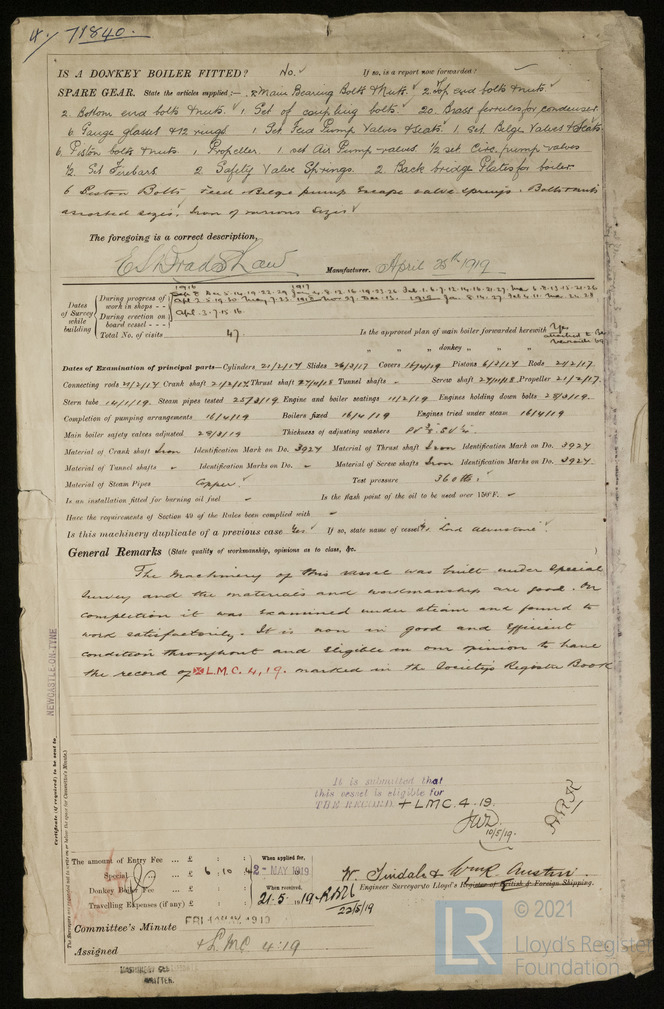 4/ 71840.
IS A DONKEY BOILER FITTED? No. If so, is a report now forwarded?
SPARE GEAR. State the articles supplied:— 2 Main Bearing Bolts & Nuts. 2 Top end bolts & nuts
2 Bottom end bolts & nuts. 1 Set of coupling bolts. 20 Brass ferrules for condenser
6 Gauge glasses & 12 rings 1 Set Feed Pump Valves & Seats. 1 Set Bilge Valves & Seats
6 Piston bolts & nuts. 1 Propeller. 1 set Air Pump valves. ½ set Circ. pump valves
½ Set Firebars 2 Safety Valve Springs. 2 Back bridge Plates for boiler
6 Piston Bolts Feed & Bilge pump Escape valve springs. Bolts & nuts
assorted sizes. Iron of various sizes
The foregoing is a correct description,
Manufacturer. April 25th 1919
Dates of Survey while building
During progress of work in shops - -
During erection on board vessel - - -
Apl. 3. 7. 15. 16.
Total No. of visits 47
Is the approved plan of main boiler forwarded herewith Yes
" " " donkey " "
Dates of Examination of principal parts—Cylinders 21/2/17 Slides 26/2/17 Covers 16/4/19 Pistons 6/2/17 Rods 21/2/17.
Connecting rods 21/2/17 Crank shaft 21/2/17 Thrust shaft 27/11/18 Tunnel shafts Screw shaft 27/11/18 Propeller 21/2/17.
Stern tube 14/1/19. Steam pipes tested 25/3/19 Engine and boiler seatings 11/2/19 Engines holding down bolts 28/3/19.
Completion of pumping arrangements 16/4/19 Boilers fixed 16/4/19 Engines tried under steam 16/4/19
Main boiler safety valves adjusted 28/3/19 Thickness of adjusting washers
Material of Crank shaft Iron Identification Mark on Do. 3924 Material of Thrust shaft Iron Identification Mark on Do. 3924
Material of Tunnel shafts Identification Marks on Do. Material of Screw shafts Iron Identification Marks on Do. 3924.
Material of Steam Pipes Copper Test pressure 360 lbs.
Is an installation fitted for burning oil fuel Is the flash point of the oil to be used over 150°F.
Have the requirements of Section 49 of the Rules been complied with
Is this machinery duplicate of a previous case Yes If so, state name of vessel Lord
General Remarks (State quality of workmanship, opinions as to class, &c. )
The Machinery of this vessel was built under Special
Survey and the materials and workmanship are good. On
completion it was examined under steam and found to
work satisfactorily. It is now in good and Efficient
condition throughout and Eligible in our opinion to have
the record of ✠L.M.C. 4,19. marked in the Society's Register Book
NEWCASTLE-ON-TYNE
Certificate (if required) to be sent to
It is submitted that
this vessel is eligible for
THE RECORD. + LMC. 4.19.
10/5/19.
The amount of Entry Fee ... £ : : When applied for,
Special ... £ 6 . 10 2 - MAY 1919
Donkey Boiler Fee ... £ : : When received,
Travelling Expenses (if any) £ : : 21.5.1919
22/5/19
W. Tindale & Wm. Austin.
Engineer Surveyors to Lloyd's Register of British & Foreign Shipping.
Committee's Minute
Assigned + LMC 4.19
WRITTEN.
LR
© 2021
Lloyd's Register
Foundation